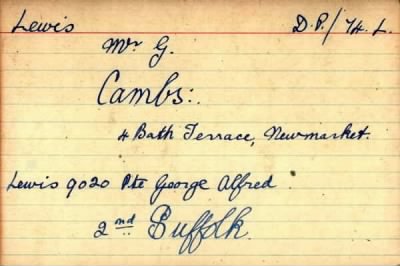 Lewis D.P./74.L.
Mr G.
Cambs:.
4 Bath Terrace, Newmarket.
Lewis 9020 Pte George Alfred
2nd Suffolk.